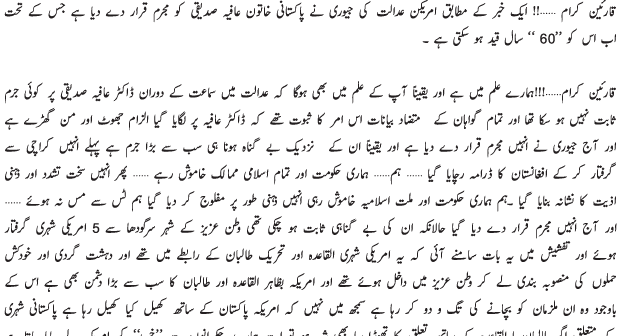 قارئین کرام ……!! ایک خبر کے مطابق امریکن عدالت کی جیوری نے پاکستانی خاتون عافیہ صدیقی کو مجرم قرار دے دیا ہے جس کے تحت
اب اس کو ’’60 ‘‘ سال قید ہو سکتی ہے ۔
قارئین کرام……!!!ہمارے علم میں ہے اور یقیناً آپ کے علم میں بھی ہوگا کہ عدالت میں سماعت کے دوران ڈاکٹر عافیہ صدیقی پر کوئی جرم
ثابت نہیں ہو سکا تھا اور تمام گواہان کے متضاد بیانات اس امر کا ثبوت تھے کہ ڈاکٹر عافیہ پر لگایا گیا الزام جھوٹ اور من گھڑے ہے
اور آج جیوری نے انہیں مجرم قرار دے دیا ہے اور یقیناً ان کے نزدیک بے گناہ ہونا ہی سب سے بڑا جرم ہے پہلے انہیں کراچی سے
گرفتار کر کے افغانستان کا ڈرامہ رچایا گیا …… ہم…… ہماری حکومت اور تمام اسلامی ممالک خاموش رہے …… پھر انہیں سخت تشدد اور ذہنی
اذیت کا نشانہ بنایا گیا ۔ہم ہماری حکومت اور ملت اسلامیہ خاموش رہی انہیں ذہنی طور پر مفلوج کر دیا گیا ہم ٹس سے مس نہ ہوئے ……
اور آج انہیں مجرم قرار دے دیا گیا حالانکہ ان کی بے گناہی ثابت ہو چکی تھی وطن عزیز کے شہر سرگودھا سے 5 امریکی شہری گرفتار
ہوئے اور تفتیش میں یہ بات سامنے آئی کہ یہ امریکی شہری القاعدہ اور تحریک طالبان کے رابطے میں تھے اور دہشت گردی اور خودکش
حملوں کی منصوبہ بندی لے کر وطن عزیز میں داخل ہوئے تھے اور امریکہ بظاہر القاعدہ اور طالبان کا سب سے بڑا دشمن بھی ہے اس کے
باوجود وہ ان ملزمان کو بچانے کی تگ و دو کر رہا ہے سمجھ میں نہیں کہ امریکہ پاکستان کے ساتھ کھیل کیا کھیل رہا ہے پاکستانی شہری